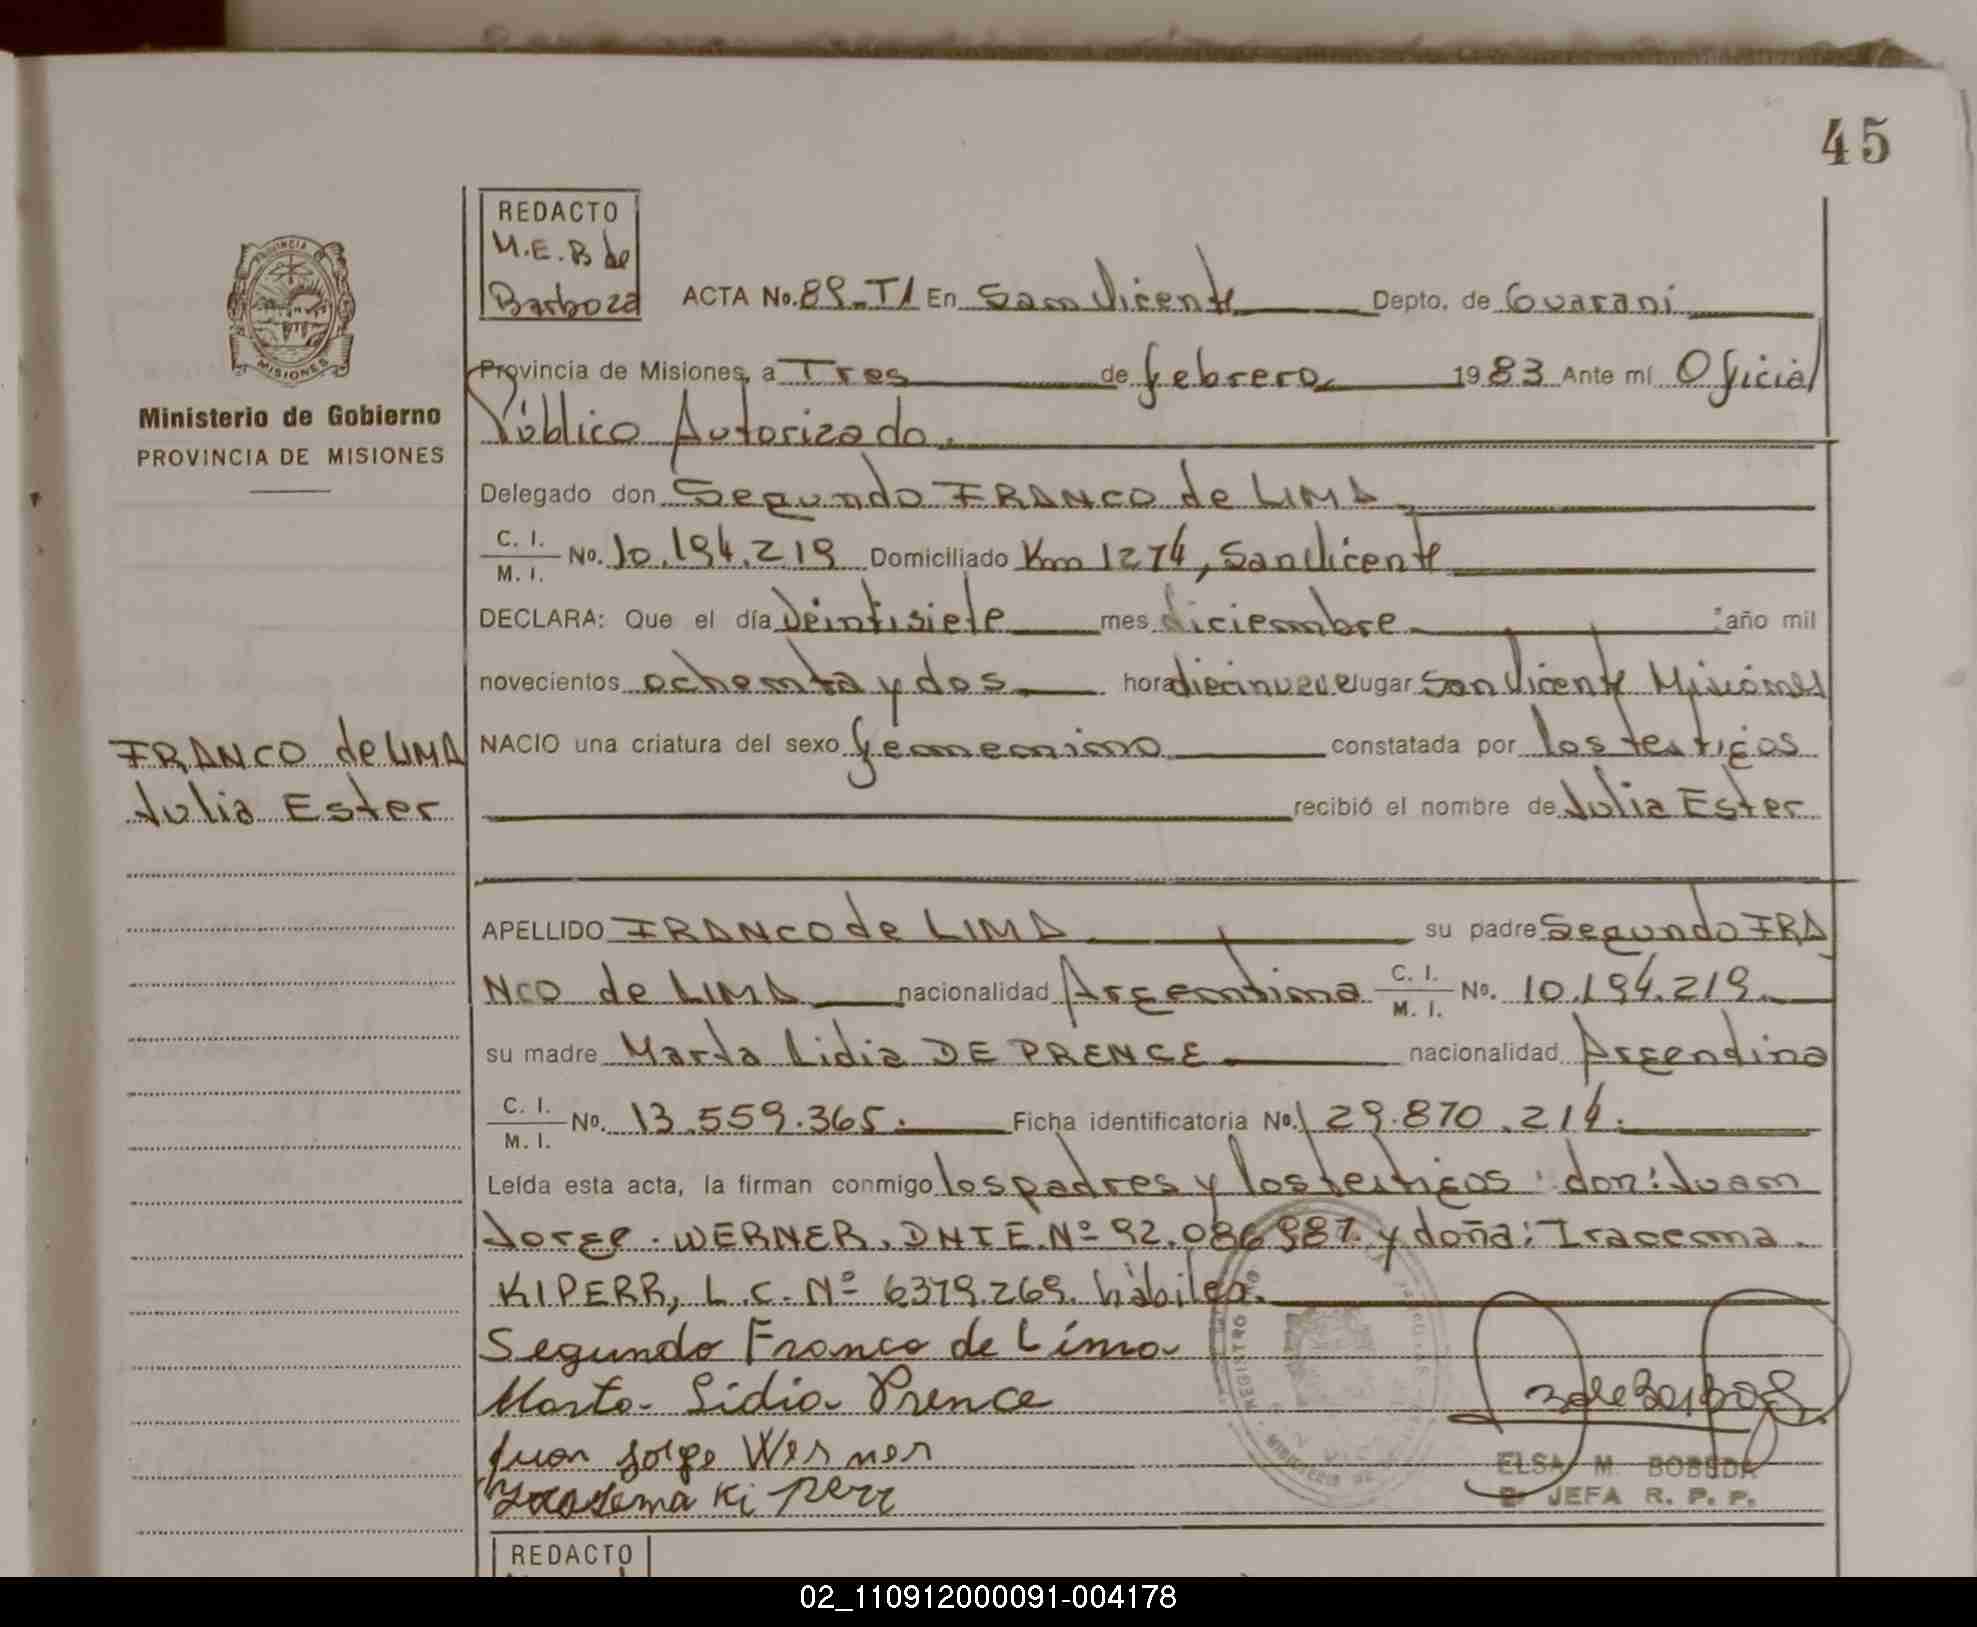 45
REDACTO
M.E.B de
Barboza
ACTA No. 89-T1 En San Vicente Depto. de Guarani
Provincia de Misiones, a Tres de febrero 1983 Ante mí Oficial
Público Autorizado.
Ministerio de Gobierno
PROVINCIA DE MISIONES
Delegado don Segundo FRANCO de LIMA
C. I.
M. I. No. 10.194.219 Domiciliado Km 1274, San Vicente
DECLARA: Que el día Veintisiete mes diciembre año mil
novecientos ochenta y dos hora diecinueve lugar San Vicente Misiones
NACIO una criatura del sexo femenino constatada por los testigos
FRANCO de LIMA
Julia Ester
recibió el nombre de Julia Ester
APELLIDO FRANCO de LIMA su padre Segundo FRA
NCO de LIMA nacionalidad Argentina C. I. M. I. No. 10.194.219.
su madre Marta Lidia DE PRENCE nacionalidad Argentina
C. I.
M. I. No. 13.559.365. Ficha identificatoria No. 29.870.214.
Leída esta acta, la firman conmigo los padres y los testigos: don: Juan
Jorge WERNER, DNIE. Nº 92.086987 y doña: Iracema
KIPERR, L.C. Nº 6379.269. hábiles.
Segundo Franco de Lima
Marta Lidia Prence
Juan Jorge Werner
Iracema Kiperr
ELSA M. BOBEDA
JEFA R. P. P.
REDACTO
02_110912000091-004178